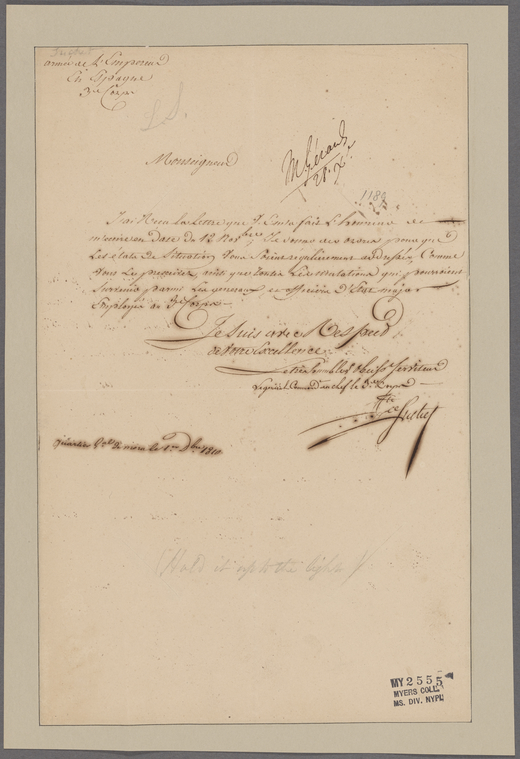 Suchet
armée de L'Empereur
En Espagne
3me Corps
L.S.
Monseigneur
M. Gérard
1189
J'ai Reçu la Lettre que V. Ex. m'a fait L'honneur de
m'écrire en date du 12 Nov.bre, Je donne des ordres pour que
Les états de Situation Vous Soient régulièrement adressés, Comme
Vous Le prescrivez, ainsi que toutes Les mutations qui pourraient
Survenir parmi Les généraux, et officiers D'Etat major
Employés au 3e Corps
Je Suis avec Respect
de votre Excellence
Le très humble & obéiss.t Serviteur
Le général Command.t en chef le 3me Corps
Cte Suchet
quartier g.al de mora le 1er Xbre 1810
(Hold it up to the light)
MY 2555
MYERS COLL.
MS. DIV. NYPL